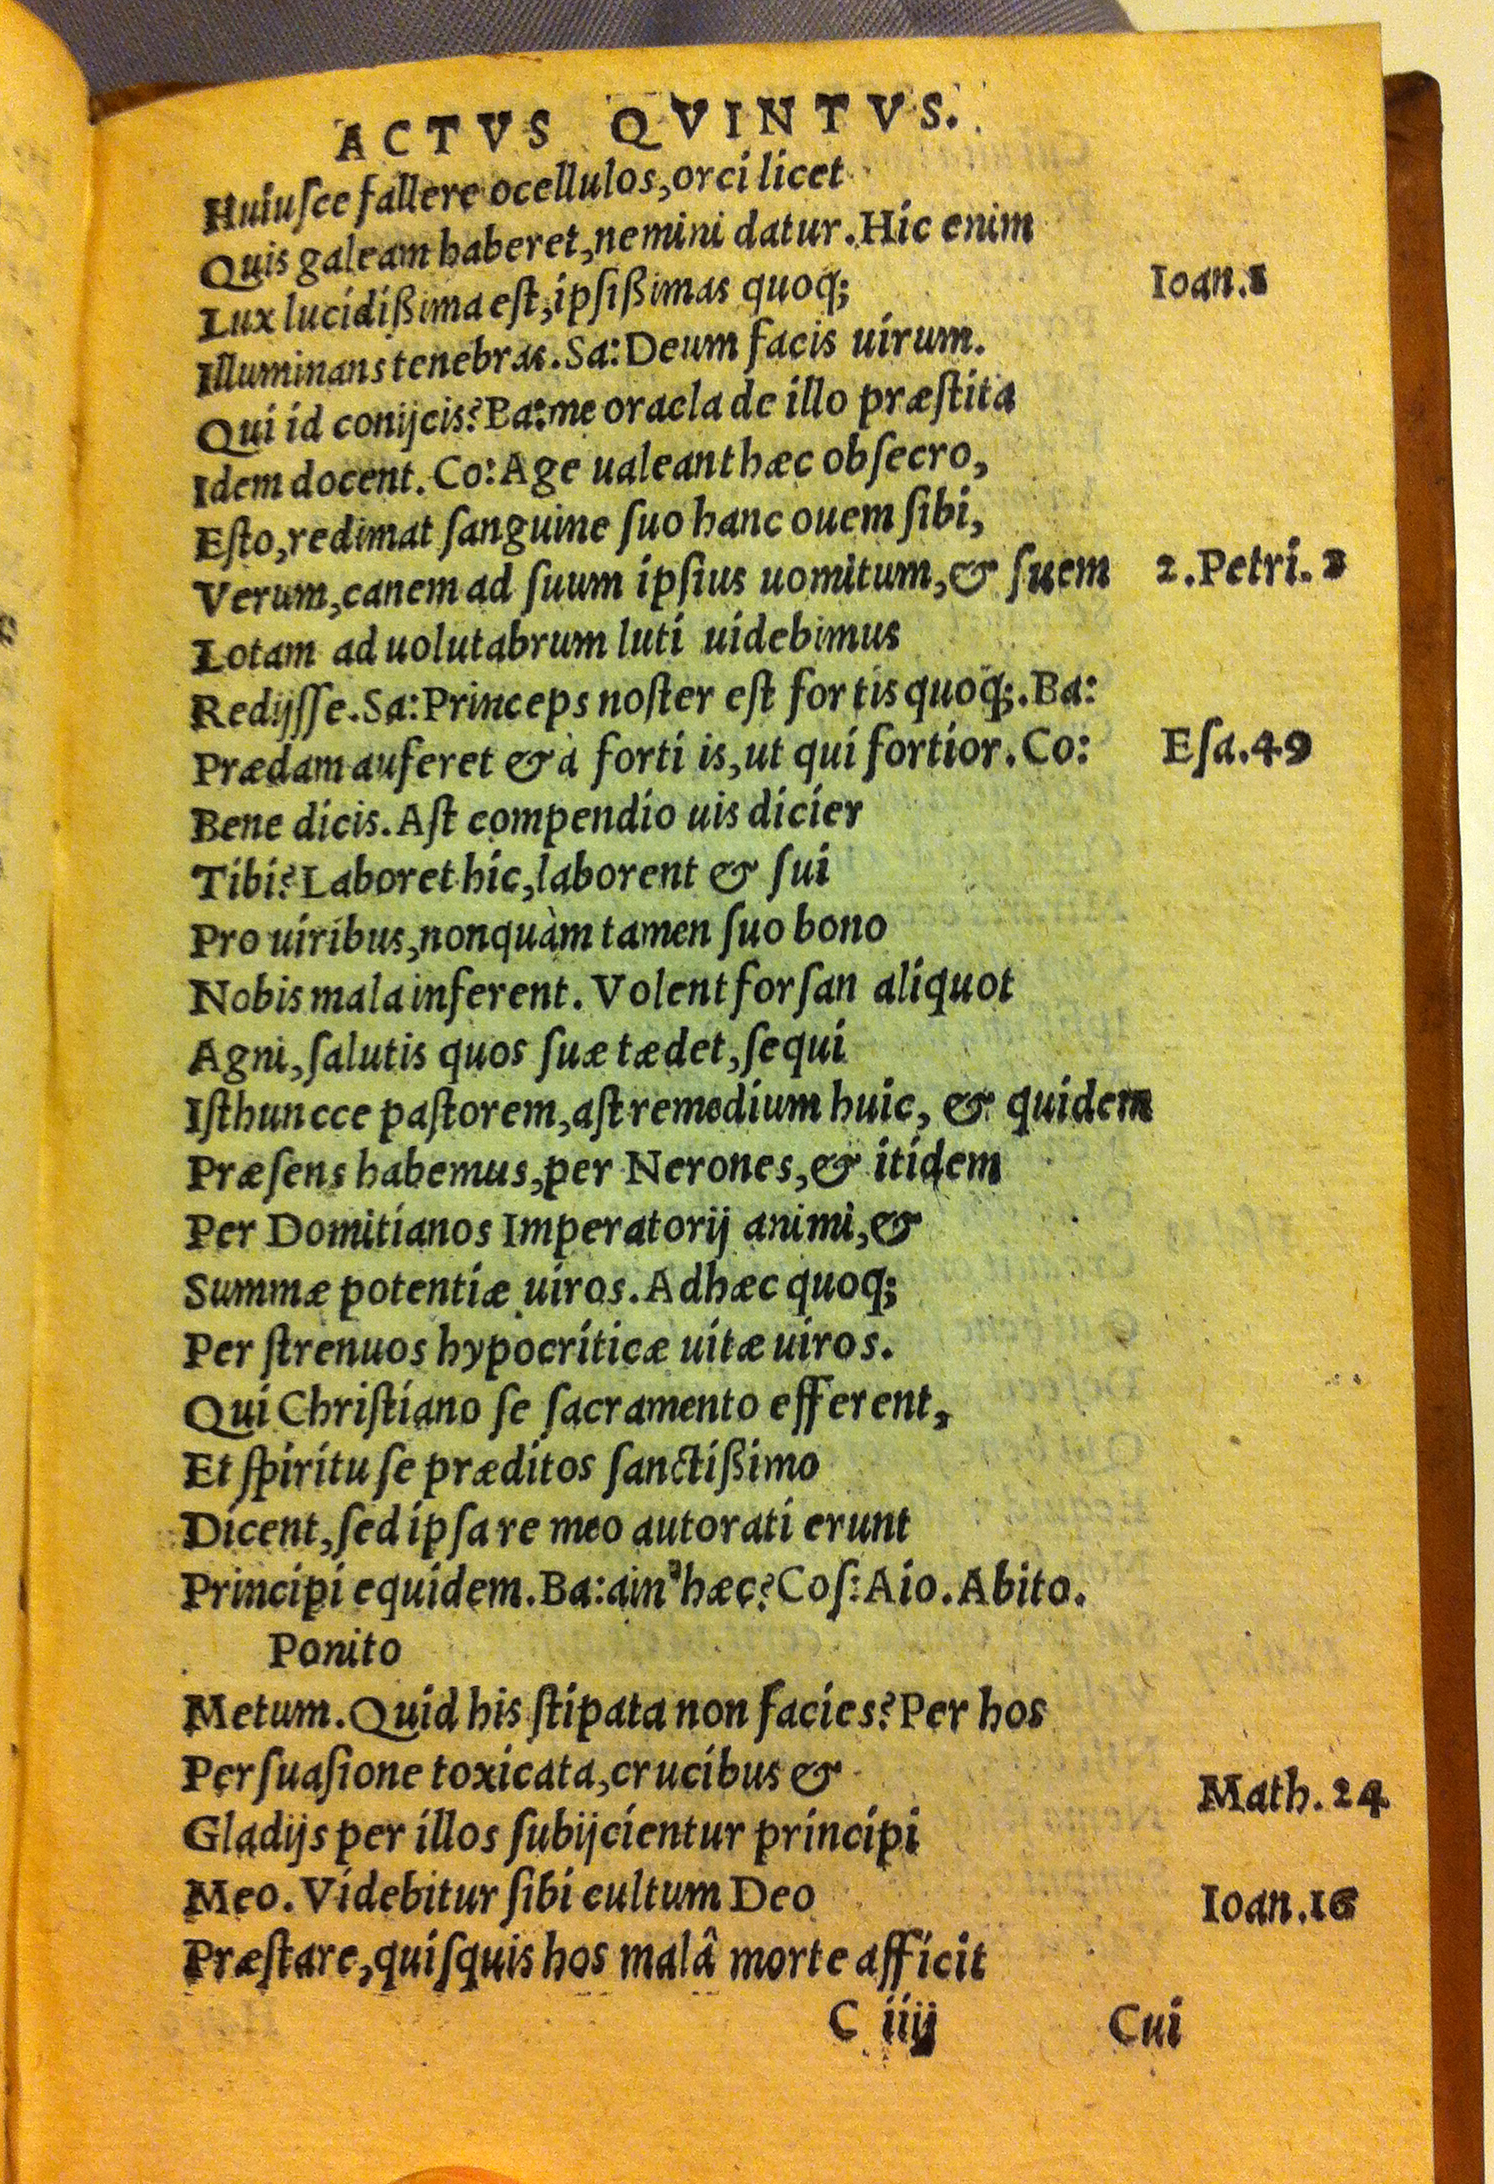 ACTVS QVINTVS.
Huiuſce fallere ocellulos, orci licet
Quis galeam haberet, nemini datur. Hic enim
Lux lucidißima est, ipſißimas quoq;
Ioan.1
Illuminans tenebras. Sa: Deum facis uirum.
Qui id conijcis? Ba: me oracla de illo præſtita
Idem docent. Co: Age ualeant hæc obſecro,
Eſto, redimat ſanguine ſuo hanc ouem ſibi,
Verum, canem ad ſuum ipſius uomitum, & ſuem
2. Petri. 2
Lotam ad uolutabrum luti uidebimus
Redijſſe. Sa: Princeps noſter eſt fortis quoq;. Ba:
Prædam auferet & à forti is, ut qui fortior. Co:
Eſa. 49
Bene dicis. Aſt compendio uis dicier
Tibi? Laboret hic, laborent & ſui
Pro uiribus, nonquàm tamen ſuo bono
Nobis mala inferent. Volent forſan aliquot
Agni, ſalutis quos ſuæ tædet, ſequi
Iſthuncce paſtorem, aſt remedium huic, & quidem
Præſens habemus, per Nerones, & itidem
Per Domitianos Imperatorij animi, &
Summæ potentiæ uiros. Adhæc quoq;
Per ſtrenuos hypocriticæ uitæ uiros.
Qui Chriſtiano ſe ſacramento efferent,
Et ſpiritu ſe præditos ſanctißimo
Dicent, ſed ipſa re meo autorati erunt
Principi equidem. Ba: ain' hæc? Coſ: Aio. Abito.
Ponito
Metum. Quid his ſtipata non facies? Per hos
Perſuaſione toxicata, crucibus &
Math. 24
Gladijs per illos ſubijcientur principi
Meo. Videbitur ſibi cultum Deo
Ioan. 16
Præſtare, quiſquis hos malâ morte afficit
C iiij
Cui